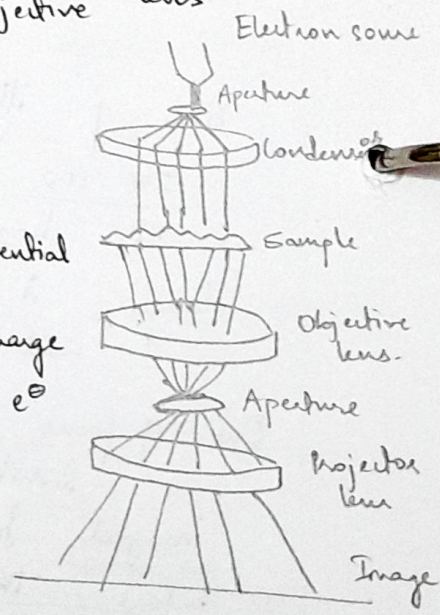 jective lens
Electron source
Aperture
Condensor
ential
Sample
Objective
lens.
harge
e⊖
Aperture
Projector
lens
Image